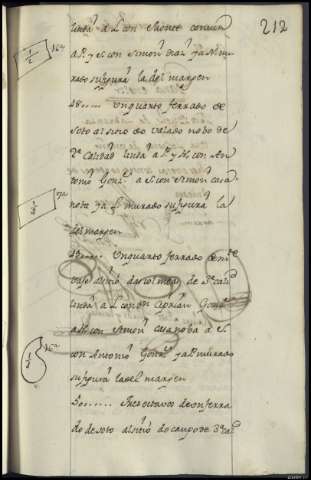 212
linda a L con el monte comun
a P. y s. con Simon Diaz y a N. mu
rado su figura la del margen
48..... Un quarto ferrado de
soto al sitio do Valado nobo de
2ª calidad linda a P. y N. con An
tonio Gonz.z a S. con Simon Casa
noba y a L. murado su figura la
del margen
49..... Un quarto ferrado de
sitio das Colmeas de 3ª calid
linda a L. con Adrian Gonz
a N. con Simon Casanoba a S.
con Antonio Gonz.z y a P. murado
su figura la del margen
50...... Tres octavos de un ferra
do de soto al sitio do Campo de 3ª cal